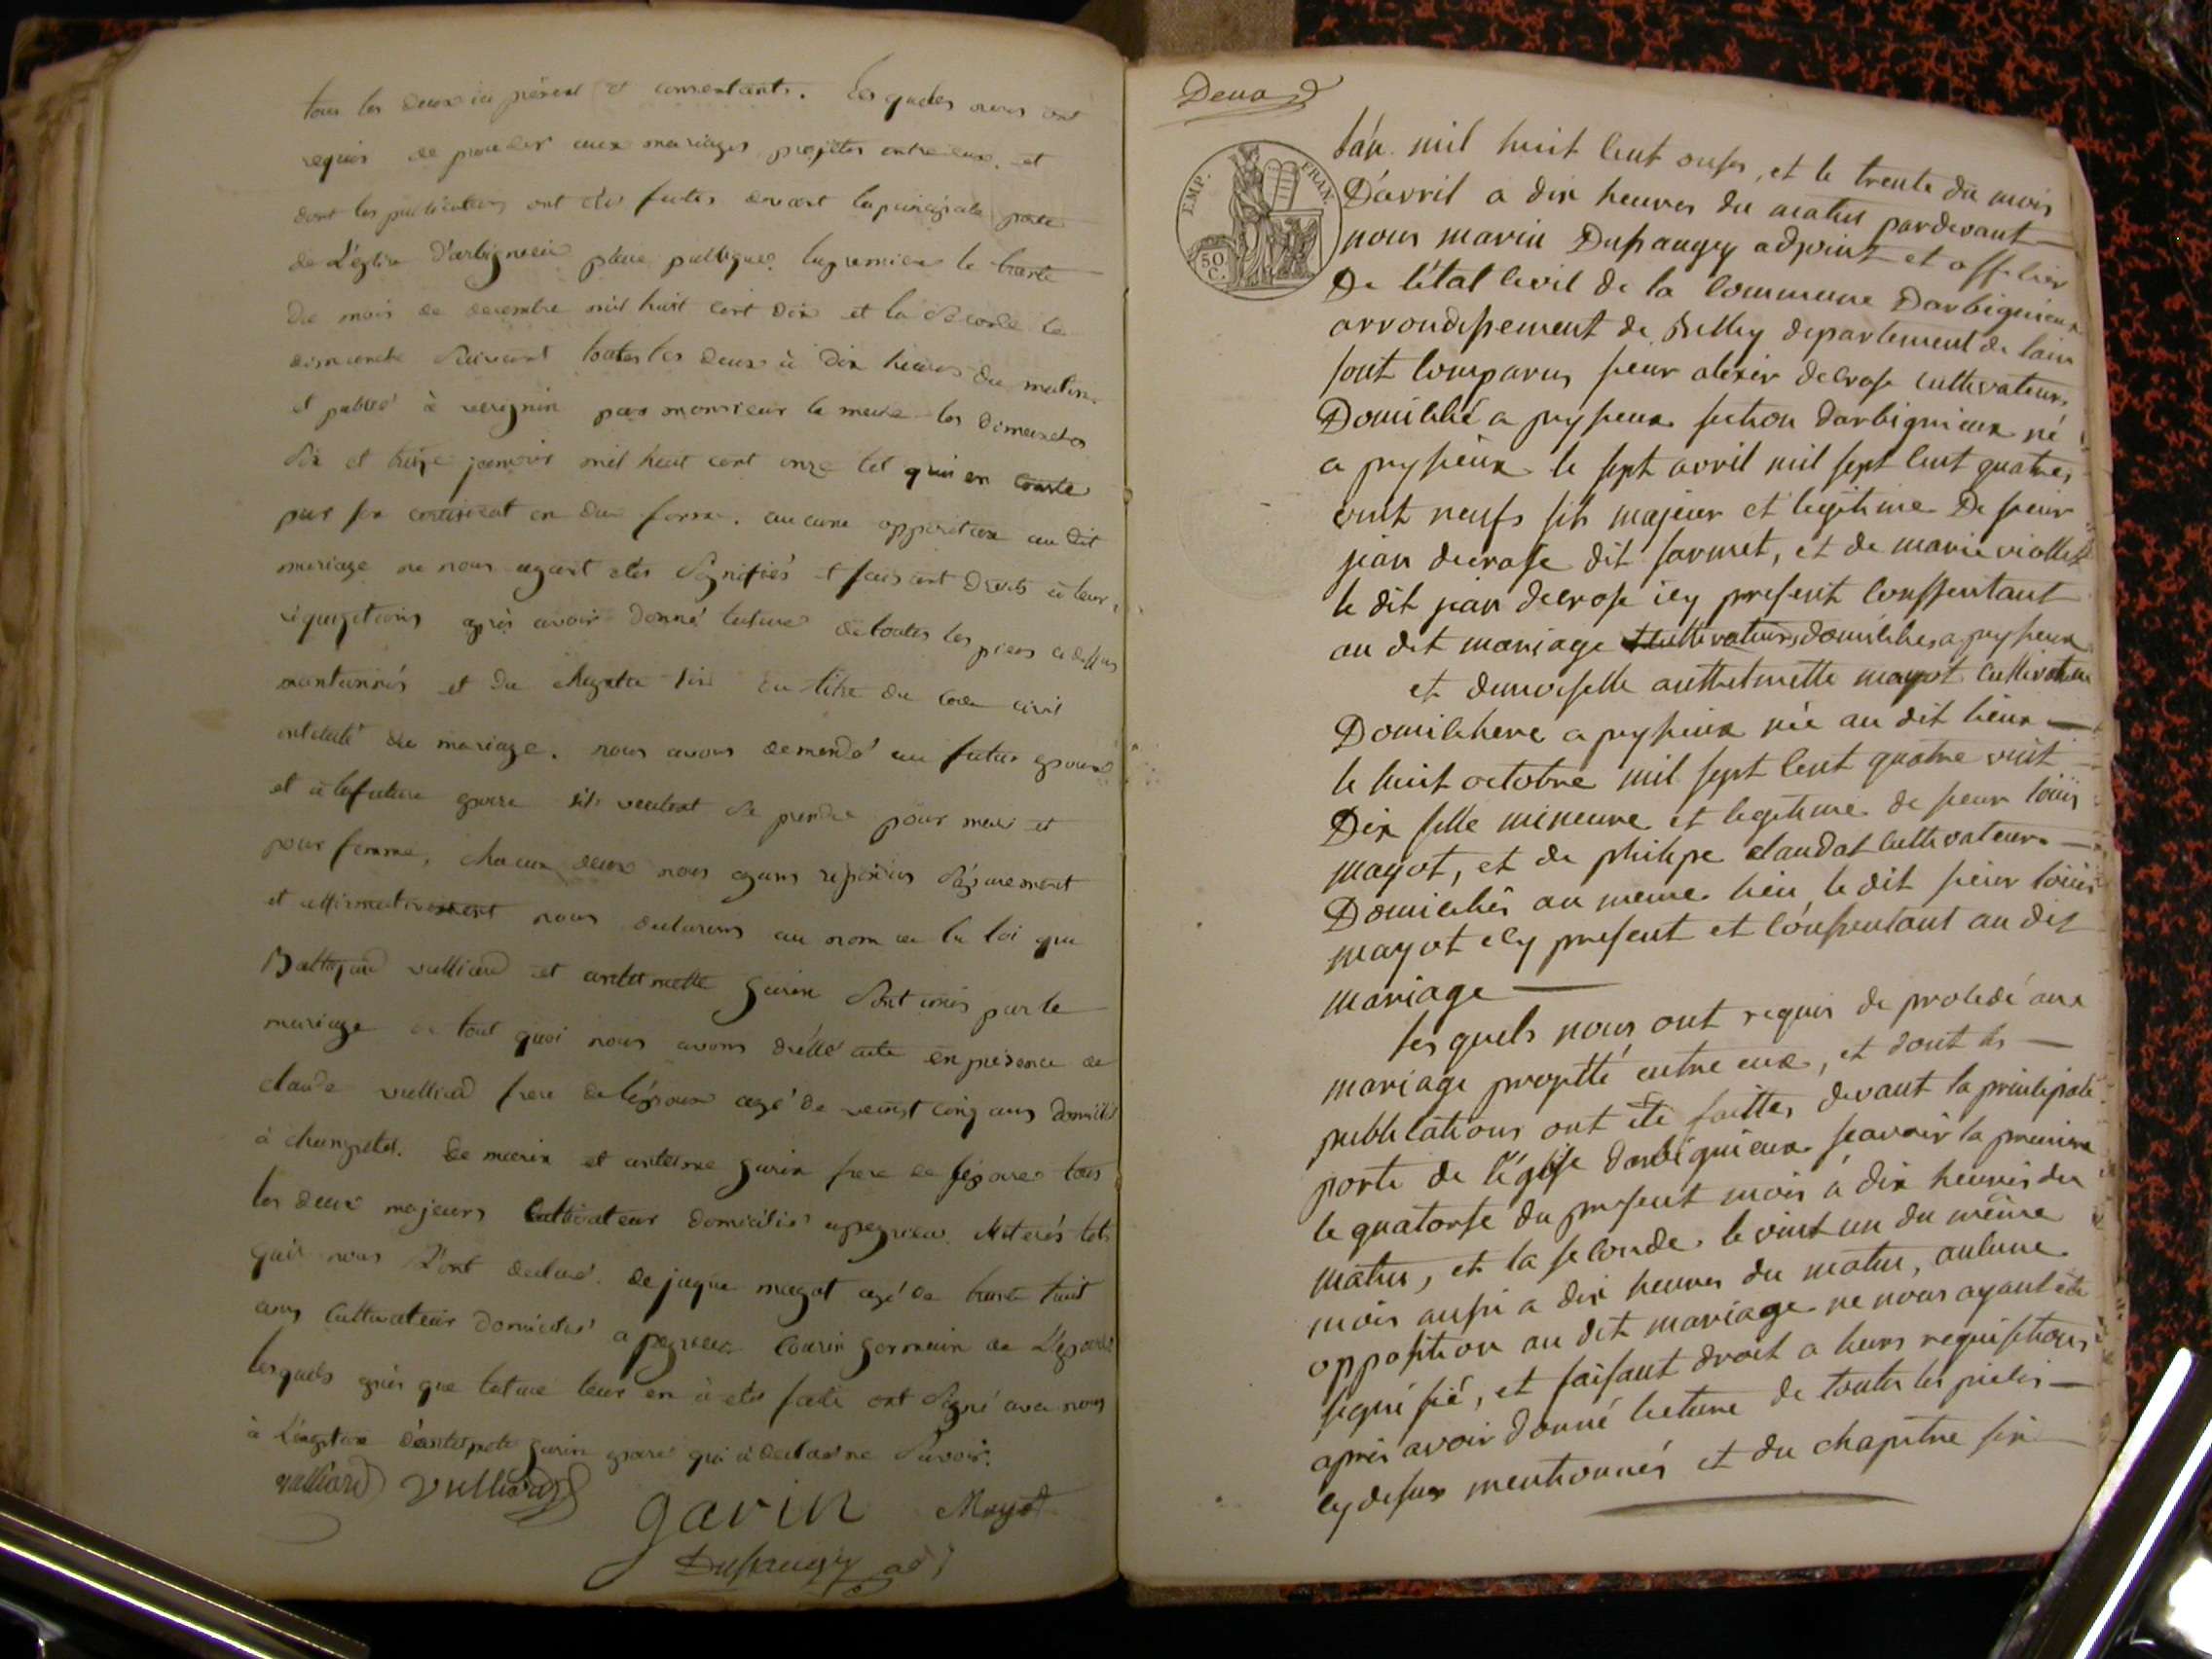 tous les deux ici présent et consentants. Les quelles nous ont
requis de proceder aux mariages projetes entre eux. et
dont les publications ont étés faites devant la principale porte
de L'église D'arbignieu place publique. la premiere le trente
du mois de decembre mil huit cent dix et la seconde le
dimanche Suivant toutes les deux à Dix heures du matin.
et publié à virignin par monsieur le maire les dimanches
Six et treize janvier mil huit cent onze tel qui en conste
par son certificat en due forme. aucune opposition au dit
mariage ne nous ayant étés Signifiés et faisant Droits à leur
requizitions après avoir Donné lecture de toutes les pieces ci dessus
mantionnés et du chapitre Six du titre du code civil
intitulé du mariage. nous avons demandé au futur epoux
et à la future epouse s'ils veulent Se prendre pour mari et
pour femme, chacun deux nous ayans repondus Séparement
et affirmativement nous declarons au nom de la loi que
Baltazard vulliard et antelmette garin Sont unis par le
mariage de tout quoi nous avons dressé acte en presence de
claude vulliard frere de l'époux agé de vingt cinq ans domicilié
à De marin et antelme garin frere de l'épouse tous
les deux majeurs Cultivateur domicilié a peyzieu
quis nous L'ont declaré. de jaque mayot agé de trente huit
ans Cultivateur Domicilié a peyzieu Cousin germain de L'épouse
lesquels après que lecture leur en à étés faite ont Signé avec nous
à L'exeption d'antelmette garin epouse qui à declaré ne Savoir.
vulliard Vulliard
garin Mayot
Dupraugey adj
Deuxd
EMP. FRAN.
50 C.
L'an mil huit Cent onse, et le trente du mois
D'avril a dix heures du matin pardevant
nous marin Dupraugey adjoint et officier
De l'état Civil de la Commune Darbignieux
arrondissement de Belley departement de lain
sont Comparus sieur alexis decrose cultivateur,
Domicilié a pysieux section darbignieux né
a pysieux le sept avril mil sept Cent quatre
vint neufs fils majeur et legitime De sieur
jean decrose dit sarmet, et de marie viollet
le dit jean decrose icy present Conssentant
au dit mariage Cultivateurs domiciliés a pysieux
et demoiselle anthelmette mayot Cultivatrice
Domiciliere a pysieux née au dit lieux
le huit octobre mil sept Cent quatre vint
Dix fille mineure et legitime de sieur louis
mayot, et de philipe claudat Cultivateurs
Domiciliés au meme lieu, le dit sieur louis
mayot icy present et Consentant au dit
mariage
lesquels nous ont requis de procédé aux
mariage projetté entre eux, et dont les
publications ont été faittes devant la principale
porte de l'église darbignieux sçavoir la premiere
le quatorse du present mois a dix heures du
matin, et la seconde le vint un du même
mois aussi a dix heures du matin, aucune
opposition au dit mariage ne nous ayant été
signifié, et faisant droit a leurs requisitions
après avoir donné lecture de toutes les pieces
cy dessus mentionnés et du chapitre six